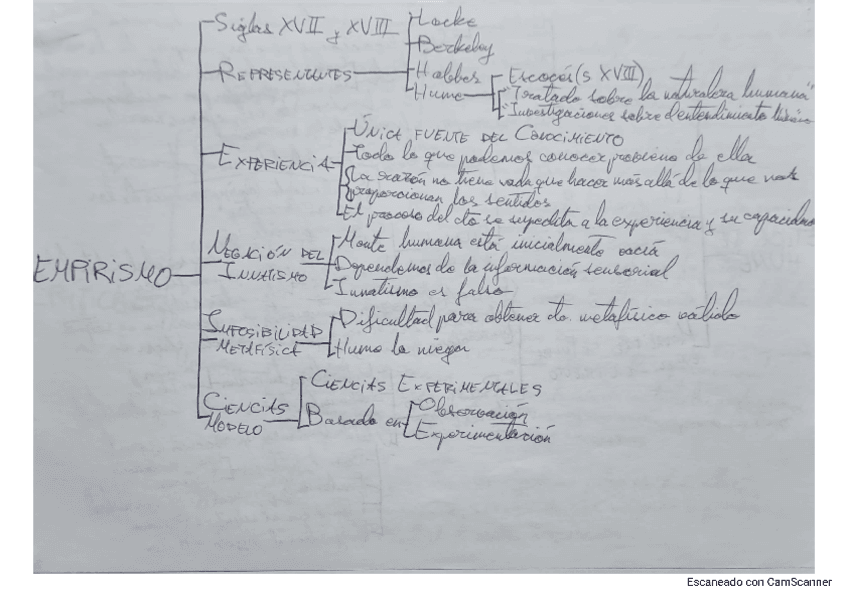 Siglos XVII y XVIII
Locke
Berkeley
REPRESENTANTES
Hobbes
Hume
Escocés (s XVIII)
"Tratado sobre la naturaleza humana"
"Investigaciones sobre el entendimiento humano
EXPERIENCIA
ÚNICA FUENTE DEL CONOCIMIENTO
Todo lo que podemos conocer proviene de ella
La razón no tiene nada que hacer más allá de lo que nos
proporcionan los sentidos
El proceso del cto se supedita a la experiencia y su capacidad
EMPIRISMO
NEGACIÓN DEL
INNATISMO
Mente humana está inicialmente vacía
Dependemos de la información sensorial
Innatismo es falso
IMPOSIBILIDAD
METAFÍSICA
Dificultad para obtener cto. metafísico válido
Hume la niega
CIENCIAS
MODELO
CIENCIAS EXPERIMENTALES
Basado en
Observación
Experimentación
Escaneado con CamScanner